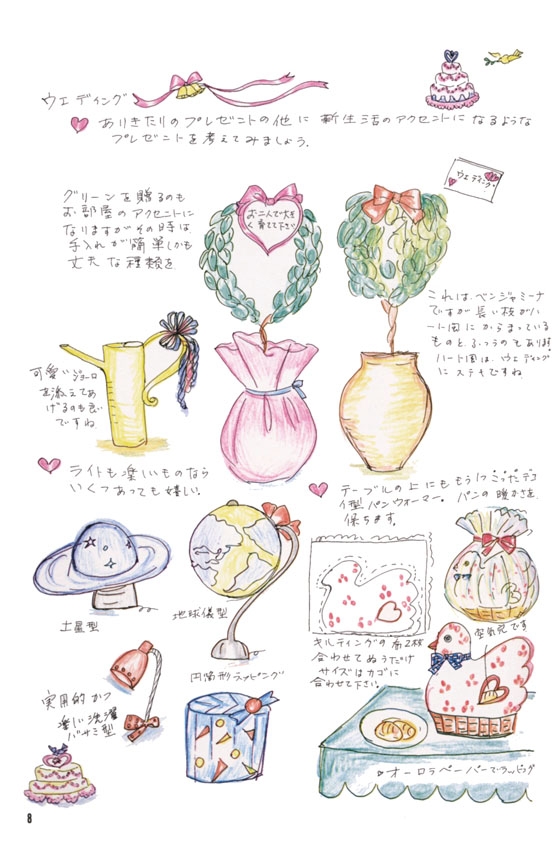 ウェディング
ありきたりのプレゼントの他に 新生活のアクセントになるような
プレゼントを考えてみましょう.
ウェディング
グリーンを贈るのも
お部屋のアクセントに
なりますがその時は
手入れが簡単しかも
丈夫な種類を
お二人で大き
く育てて下さい
これは、ベンジャミーナ
ですが長い枝がハ
ート図にからまっている
ものと、ふつうのもあります
ハート図は、ウェディング
にステキですね
可愛いジョーロ
を添えてあ
げるのも良い
ですね
ライトも楽しいものなら
いくつあっても嬉しい.
テーブルの上にももう1つこったデコ
イ型パンウォーマー。パンの暖かさを
保ちます。
土星型
地球儀型
キルティングの布2枚
合わせてぬうだけ
サイズはカゴに
合わせて下さい.
空気穴です
実用的かつ
楽しい洗濯
バサミ型
円筒形ラッピング
オーロラペーパーでラッピング
8